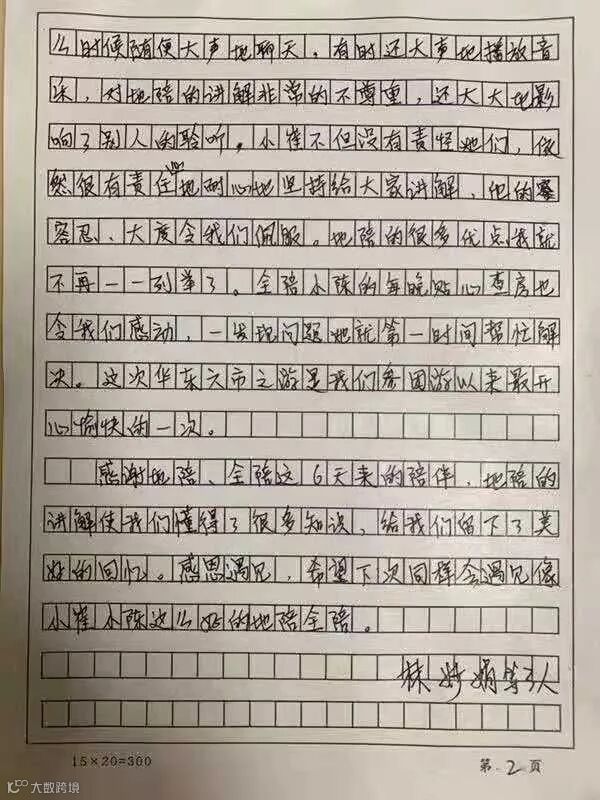 么时候随便大声地聊天。有时还大声地播放音
乐，对地陪的讲解非常的不尊重，还大大地影
响了别人的聆听。小崔不但没有责怪她们，依
然很有责任心地耐心地坚持给大家讲解，他的
容忍、大度令我们佩服。地陪的很多优点我就
不再一一列举了。全陪小陈的每晚贴心查房也
令我们感动，一发现问题她就第一时间帮忙解
决。这次华东六市之游是我们参团游以来最开
心愉快的一次。
感谢地陪、全陪这6天来的陪伴，地陪的
讲解使我们懂得了很多知识，给我们留下了美
好的回忆。感恩遇见，希望下次同样会遇见像
小崔小陈这么好的地陪全陪。
林妙娟等3人
15×20=300
第 2 页
大数跨境